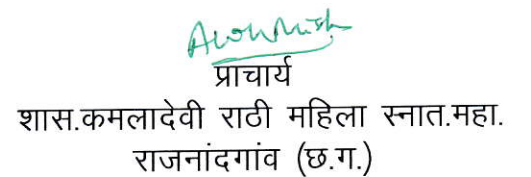 प्राचार्य
शास.कमलादेवी राठी महिला स्नात.महा.
राजनांदगांव (छ.ग.)